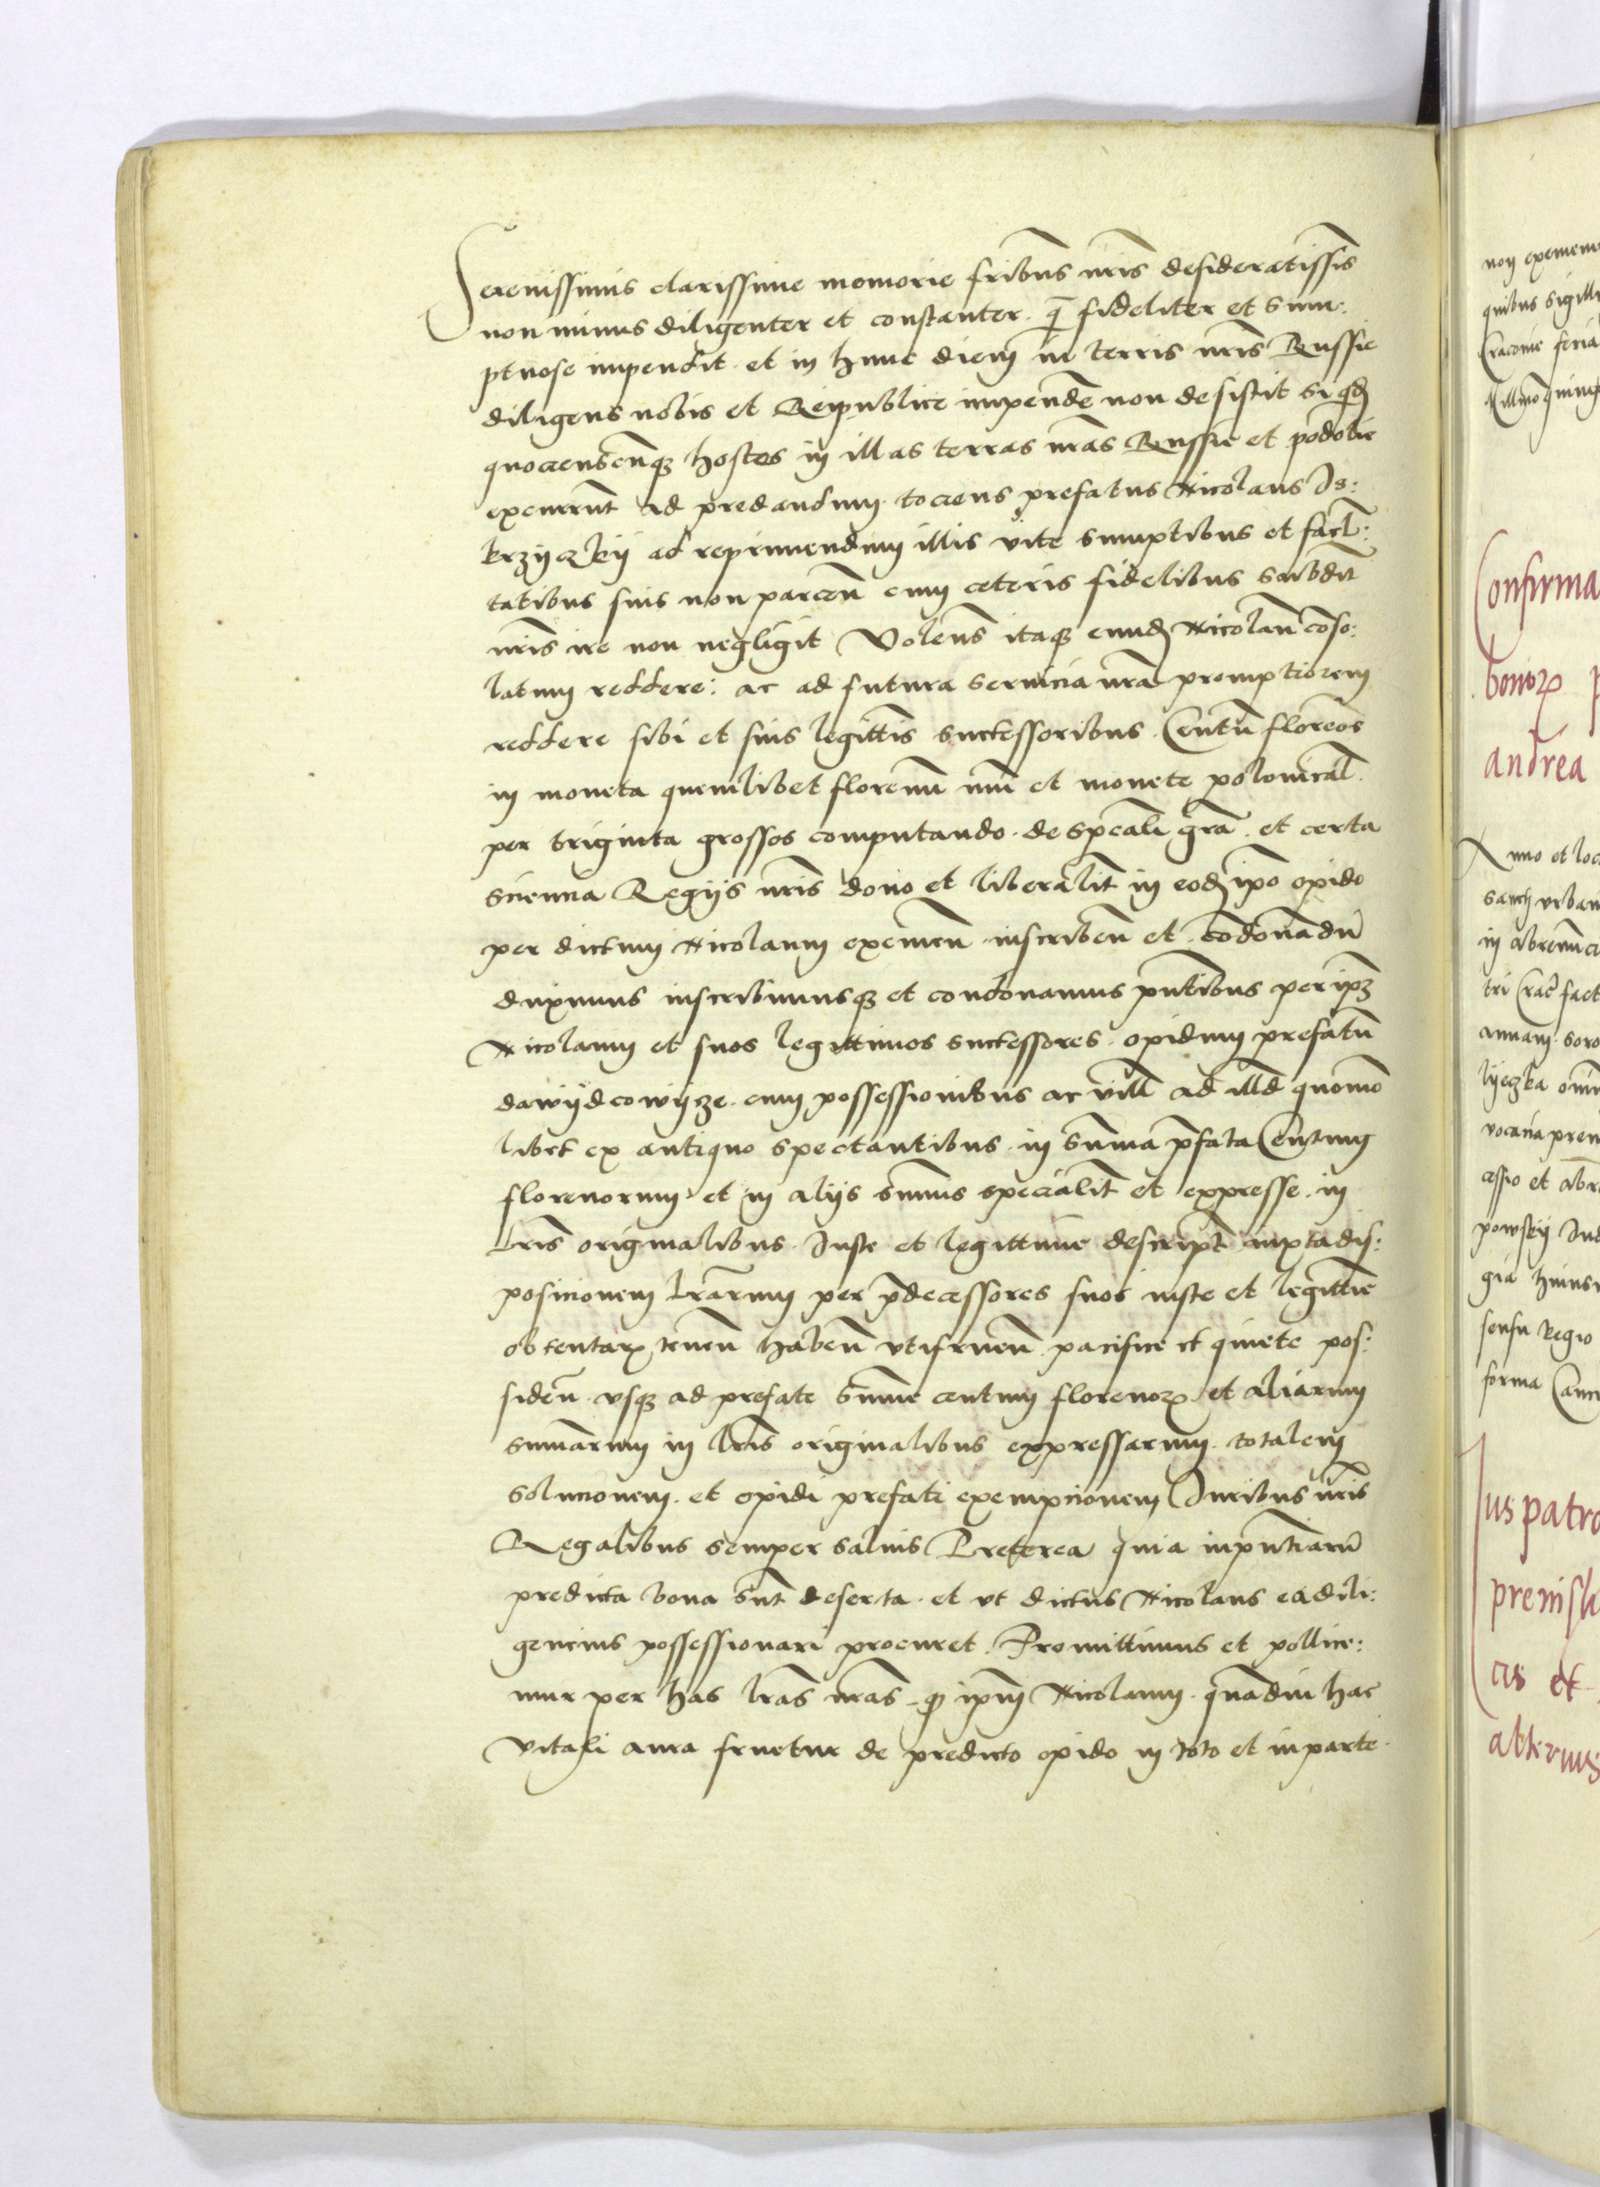 Serenissimis clarissime memorie fribus nris desideratissis
non minus diligenter et constanter. q̃ fideliter et sum:
ptuose impendit. et in hunc diem in terris nris Russie
diligens nobis et Reipublice impendẽ non desistit siqđ
quocienscunq hostes in illas terras nras Russie et podolie
excurrunt ad predandum. tociens prefatus Nicolaus Is:
krzyczky ad reprimendum illis vite sumptibus et facl:
tatibus suis non parcen cum ceteris fidelibus subdit
nris ire non negligit Volens itaq eund Nicolaũ coso:
latum reddere: ac ad futura seruicia nra promptiorem
reddere sibi et suis legittis successoribus. Centũ florẽos
in moneta quemlibet florenũ nũi et monete polonical.
per triginta grossos computando. de speciali gra. et certa
sciencia Regijs nris dono et liberalit in eod ipo opido
per dictum Nicolaum exemen. inscriben et codonadũ
duximus inscribimusq et condonamus pntibus per ipz
Nicolaum et suos legittimos successores. opidum prefatũ
dawydcowyze. cum possessionibus ac vill ad illđ quomo
libet ex antiquo spectantibus. in suma pfata Centum
florenorum. et in alijs sumis specialit et expresse. in
Lris originalibus. Iuste et legittime descript iuxta dis:
posicionem lrarum per pdecessores suos iuste et legittie
obtentar, tenen haben vtifruen pacifice et quiete pos:
siden. vsq ad prefate sume centum florenor et aliarum
sumarum in lris originalibus expressarum. totalem
solucionem. et opidi prefati exempcionem Iuribus nris
Regalibus semper saluis Preterea quia inpntiarũ
predicta bona sũt deserta. et vt dictus Nicolaus ea dili:
gencius possessionari procuret. Promittimus et pollice:
mur per has lras nras. q ipm Nicolaum. quadiu hac
Vitali aura fruetur de predicto opido in toto et in parte.
non exemem
quibus sigill
Cracouie feria
Confirma
bonor p
andrea
Anno et loc
sanch vrban
tri Crac fact
annam. soro
lyeczka omi
cessio et abr
powsky Iud
gia huius
sensu Regio
forma Canc
Ius patro
premisl
cis et
alterius